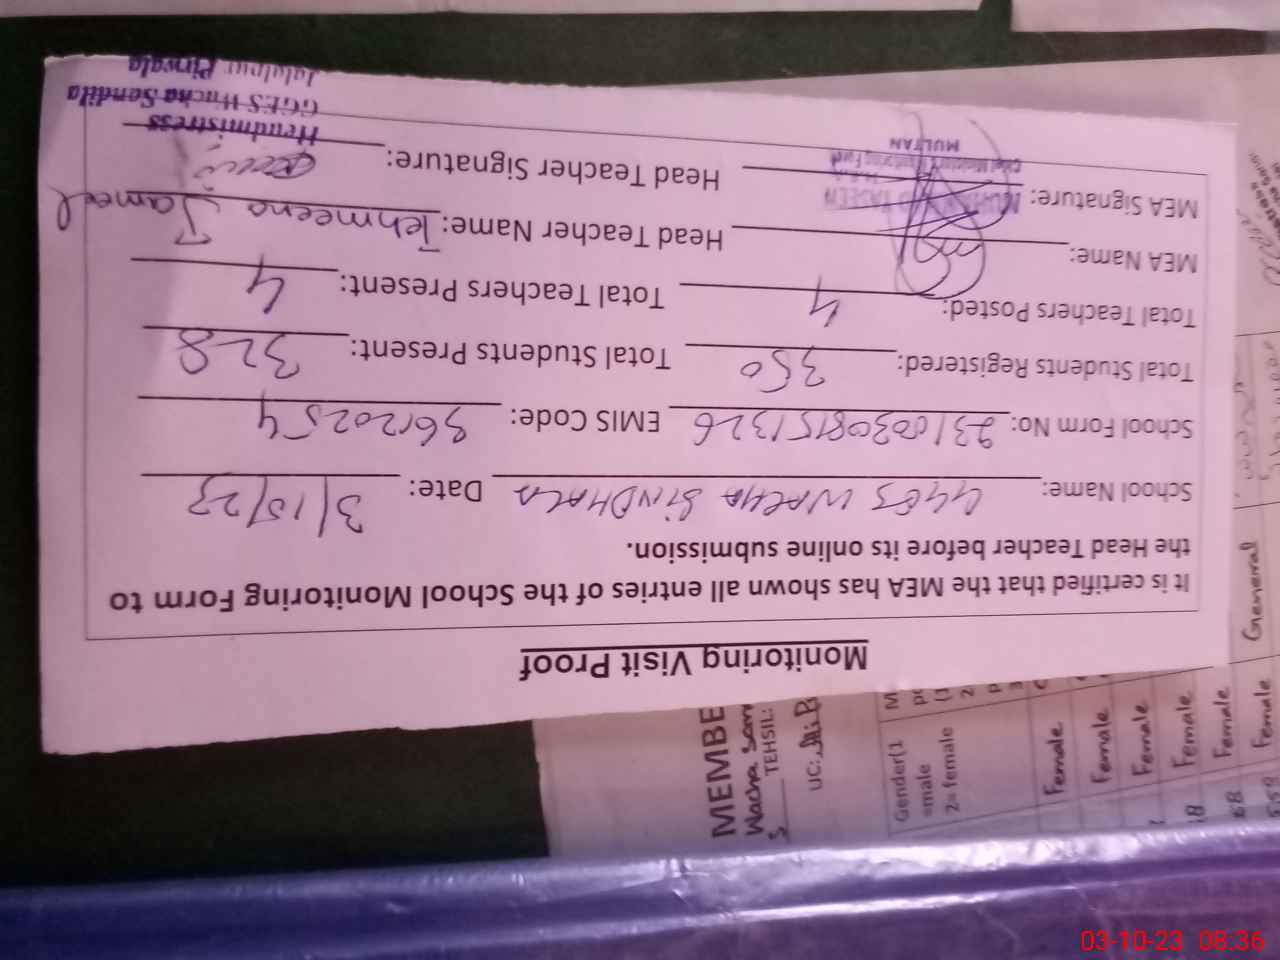 Monitoring Visit Proof
It is certified that the MEA has shown all entries of the School Monitoring Form to
the Head Teacher before its online submission.
School Name: GGES WACHA SINDHALA Date: 3/10/23
School Form No: 23100308151326 EMIS Code: 36120254
Total Students Registered: 350 Total Students Present: 328
Total Teachers Posted: 4 Total Teachers Present: 4
MEA Name: Head Teacher Name: Tehmeena Jameel
MEA Signature: Head Teacher Signature:
Chief Minister's Monitoring Force
MULTAN
Headmistress
GGES Wacha Sandila
Jalalpur Pirwala
MEMBE
Wacha San
TEHSIL:
UC:
Gender(1
=male
2=female
Female
Female
Female
Female
Female
Female General
03-10-23 08:36